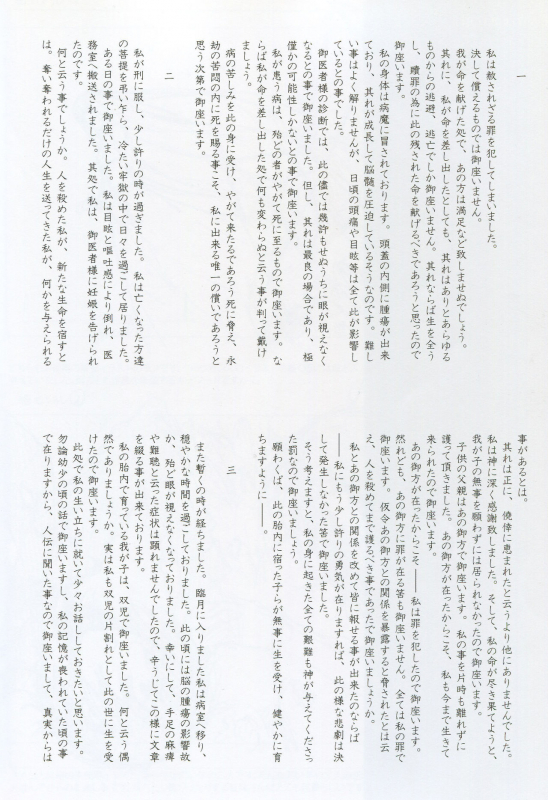 一
私は赦されざる罪を犯してしまいました。
決して償えるものでは御座いません。
我が命を献げた処で、あの方は満足など致しませぬでしょう。
其れに、私が命を差し出したとしても、其れはありとあらゆる
ものからの逃避、逃亡でしか御座いません。其れならば生を全う
し、贖罪の為に此の残された命を献げるべきであろうと思ったので
御座います。
私の身体は病魔に冒されております。頭蓋の内側に腫瘍が出来
ており、其れが成長して脳髄を圧迫しているそうなのです。難し
い事はよく解りませんが、日頃の頭痛や目眩等は全て此が影響し
ているとの事でした。
御医者様の診断では、此の儘では幾許もせぬうちに眼が視えなく
なるとの事で御座いました。但し、其れは最良の場合であり、極
僅かの可能性しかないとの事で御座います。
私が患う病は、殆どの者がやがて死に至るもので御座います。な
らば私が命を差し出した処で何も変わらぬと云う事が判って戴け
ましょう。
病の苦しみを此の身に受け、やがて来たるであろう死に脅え、永
劫の苦悶の内に死を賜る事こそ、私に出来る唯一の償いであろうと
思う次第で御座います。
二
私が刑に服し、少し許りの時が過ぎました。私は亡くなった方達
の菩提を弔い乍ら、冷たい牢獄の中で日々を過ごして居りました。
ある日の事で御座いました。私は目眩と嘔吐感により倒れ、医
務室へ搬送されました。其処で私は、御医者様に妊娠を告げられ
たのです。
何と云う事でしょうか。人を殺めた私が、新たな生命を宿すと
は。奪い奪われるだけの人生を送ってきた私が、何かを与えられる
事があるとは。
其れは正に、僥倖に恵まれたと云うより他にありませんでした。
私は神に深く感謝致しました。そして、私の命が尽き果てようと、
我が子の無事を願わずには居られなかったので御座います。
子供の父親はあの御方で御座います。私の事を片時も離れずに
護って頂きました。あの御方が在ったからこそ、私も今まで生きて
来られたので御座います。
あの御方が在ったからこそ――私は罪を犯したので御座います。
然れども、あの御方に罪が在る筈も御座いません。全ては私の罪で
御座います。仮令あの御方との関係を暴露すると脅されたとは云
え、人を殺めてまで護るべき事であったで御座いましょうか。
私とあの御方との関係を改めて皆に報せる事が出来たのならば
――私にもう少し許りの勇気が在りますれば、此の様な悲劇は決
して発生しなかった筈で御座いました。
そう考えますと、私の身に起きた全ての艱難も神が与えてくださっ
た罰なので御座いましょう。
願わくば、此の胎内に宿った子らが無事に生を受け、健やかに育
ちますように――。
三
また暫くの時が経ちました。臨月に入りました私は病室へ移り、
穏やかな時間を過ごしておりました。此の頃には脳の腫瘍の影響故
か、殆ど眼が視えなくなっておりました。幸いにして、手足の麻痺
や難聴と云った症状は顕れませんでしたので、辛うじてこの様に文章
を綴る事が出来ております。
私の胎内で育っている我が子は、双児で御座いました。何と云う偶
然でありましょうか。実は私も双児の片割れとして此の世に生を受
けたので御座います。
此処で私の生い立ちに就いて少々お話ししておきたいと思います。
勿論幼少の頃の話で御座いますし、私の記憶が喪われていた頃の事
で在りますから、人伝に聞いた事なので御座いまして、真実からは